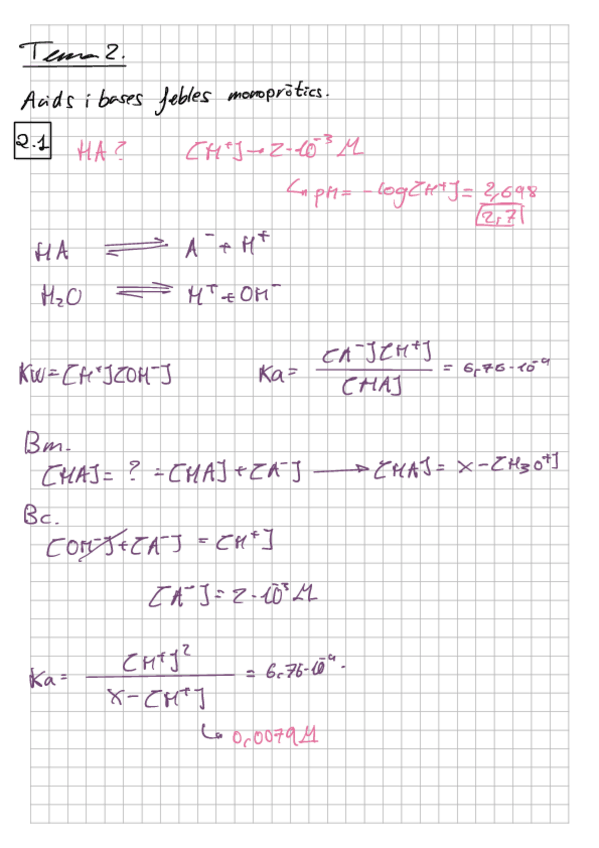 Tema 2.
Acids i bases febles monopròtics.
2.1 HA? [H⁺]→2·10⁻³ M
↳ pH = -log[H⁺] = 2,698
2,7
HA ⇌ A⁻ + H⁺
H₂O ⇌ H⁺ + OH⁻
Kw = [H⁺][OH⁻] Ka = [A⁻][H⁺] / [HA] = 6,76·10⁻⁴
Bm.
[HA] = ? = [HA] + [A⁻] → [HA] = x - [H₃O⁺]
Bc.
[OH⁻] + [A⁻] = [H⁺]
[A⁻] = 2·10⁻³ M
Ka = [H⁺]² / x - [H⁺] = 6,76·10⁻⁴.
↳ 0,0079 M